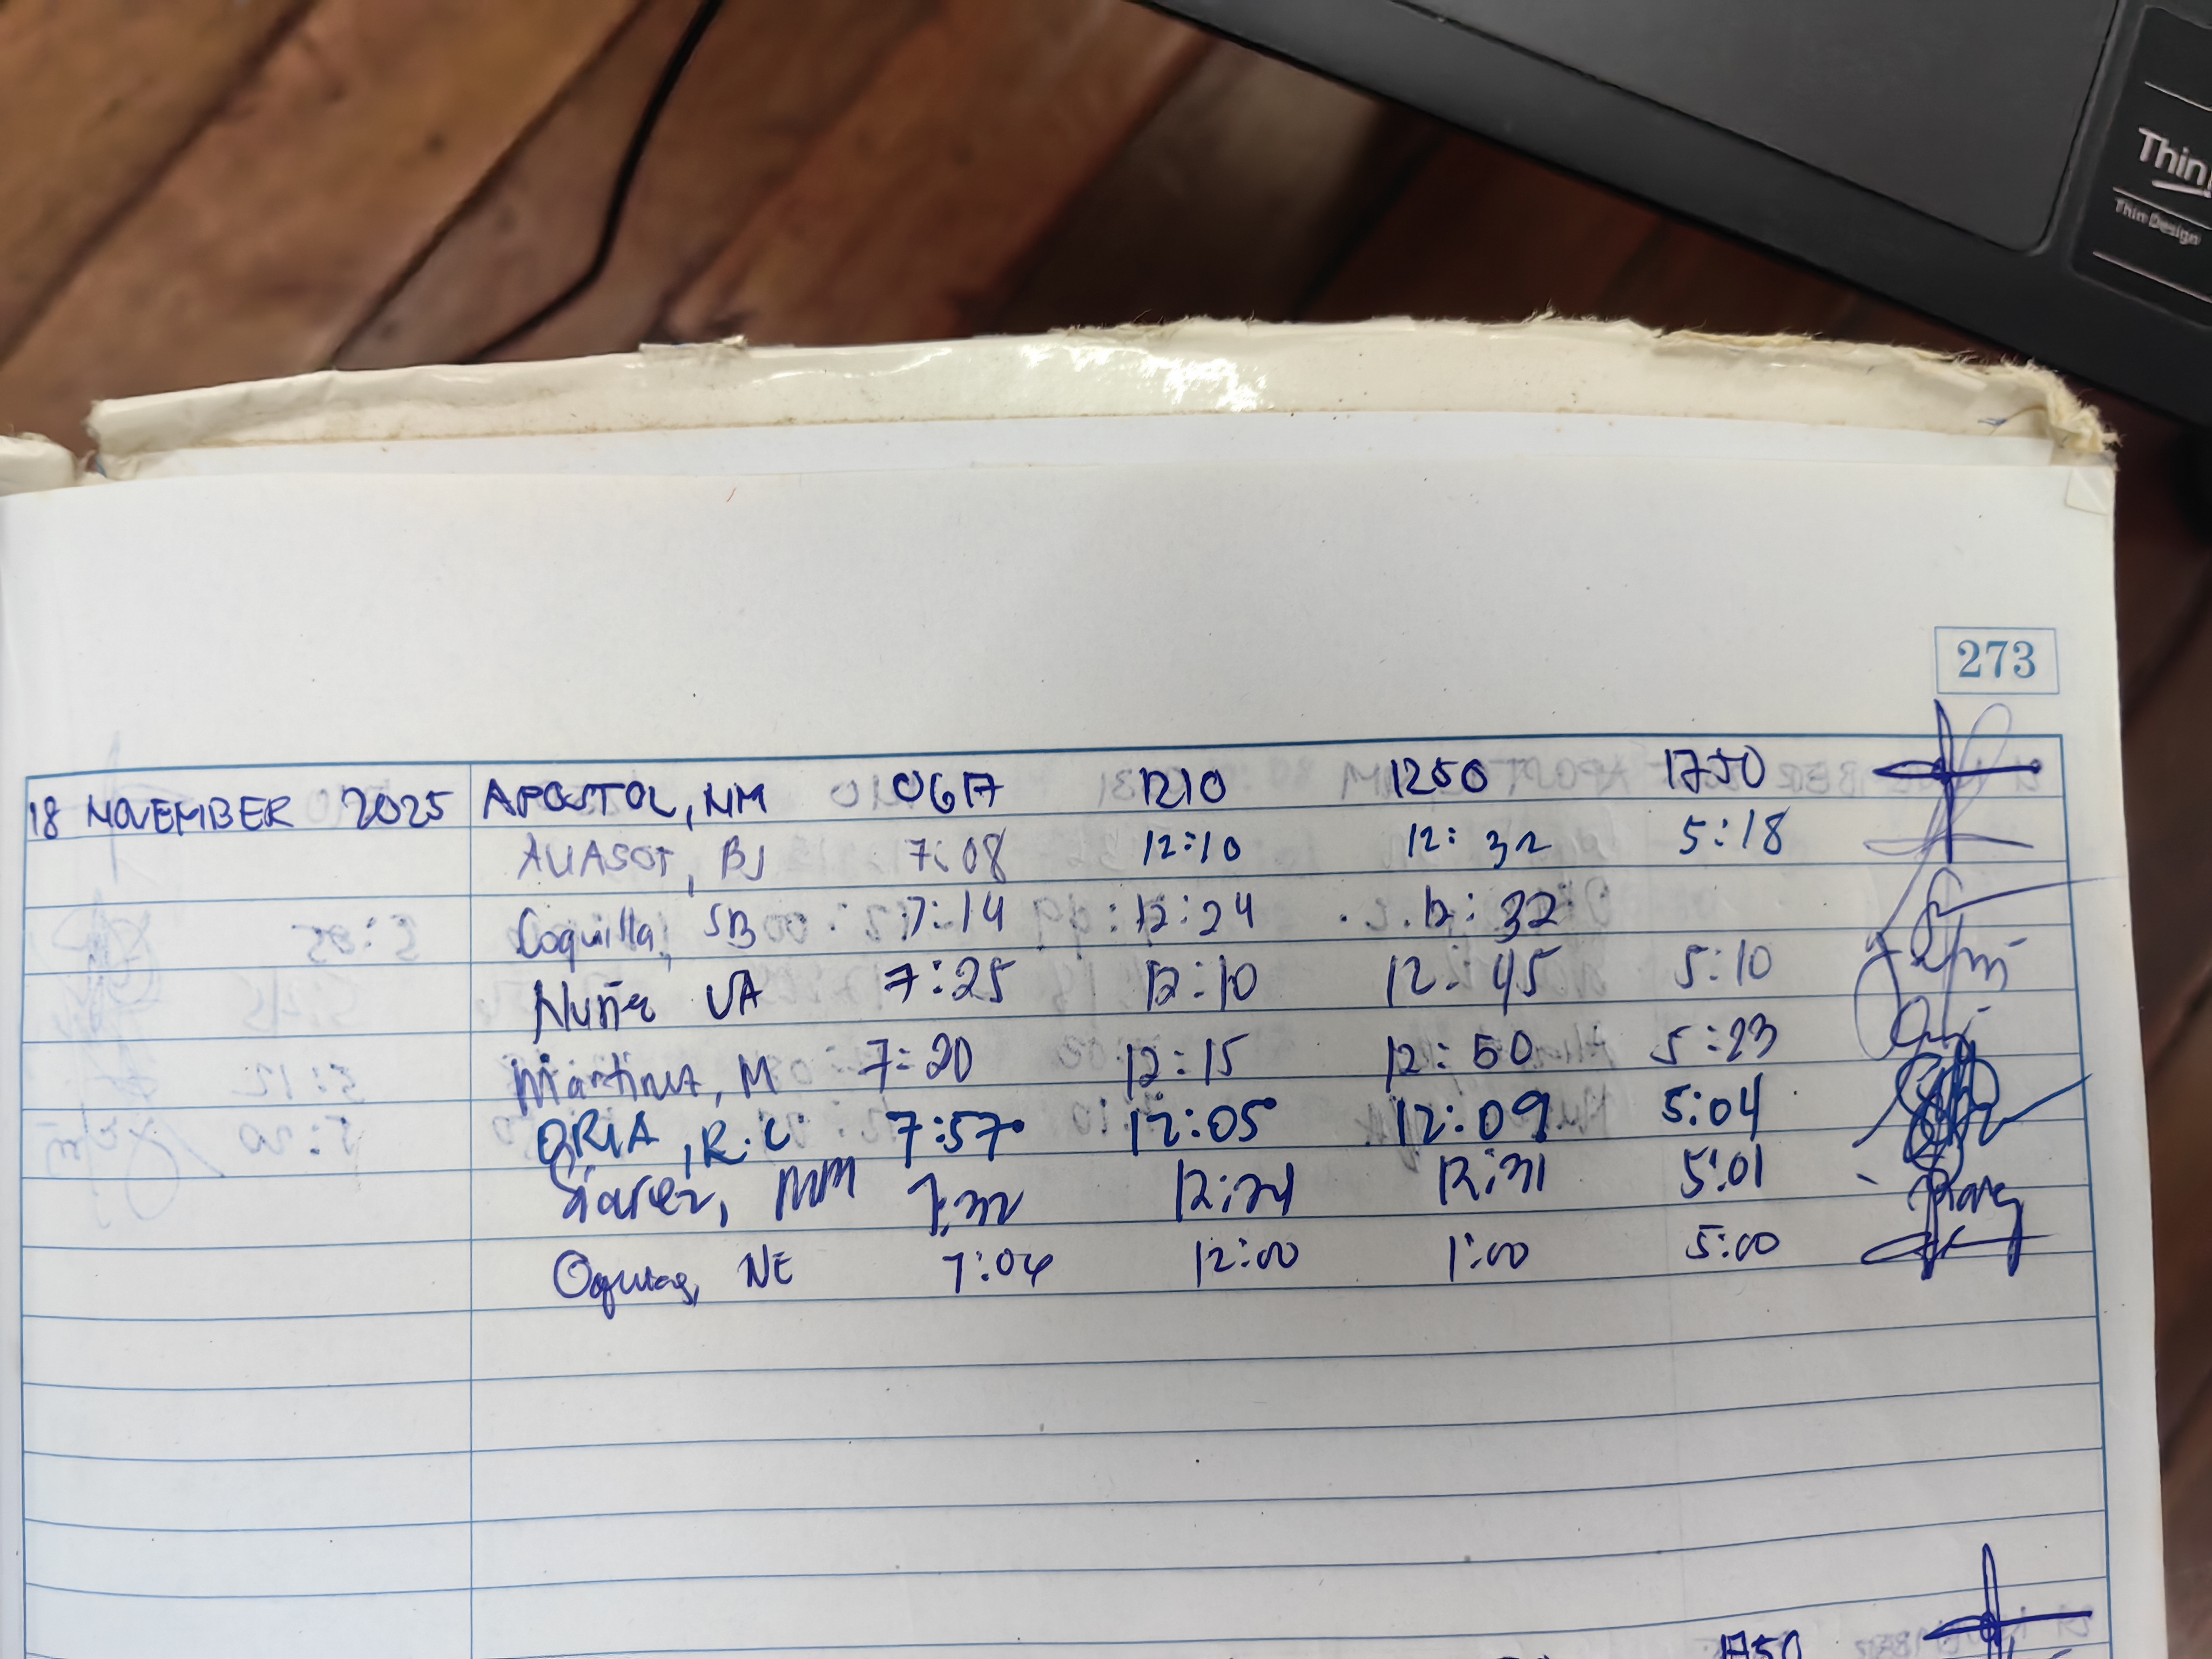 Thin
Thin Design
273
18 NOVEMBER 2025 APOSTOL, NM 0617 1210 1250 1750
AUASOT, BJ 7:08 12:10 12:32 5:18
Coquilla, SB 7:14 12:24 12:32
Nuñez VA 7:25 12:10 12:45 5:10
Martinez, M 7:20 12:15 12:50 5:23
ORIA, R.C 7:57 12:05 12:09 5:04
Suarez, MM 12:31 5:01
NE 7:04 12:00 1:00 5:00
1750